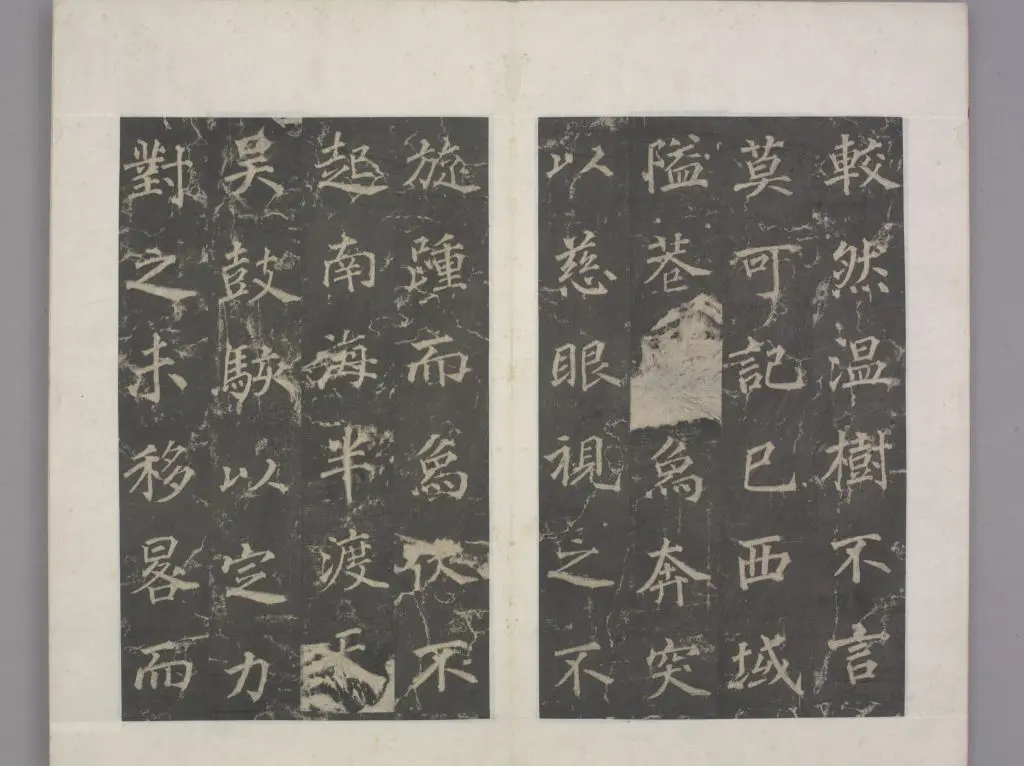 較然温樹不言
莫可記已西域
隘巷爲奔突
以慈眼視之不
旋踵而爲伏不
起南海半渡天
吴鼓駭以定力
對之未移晷而